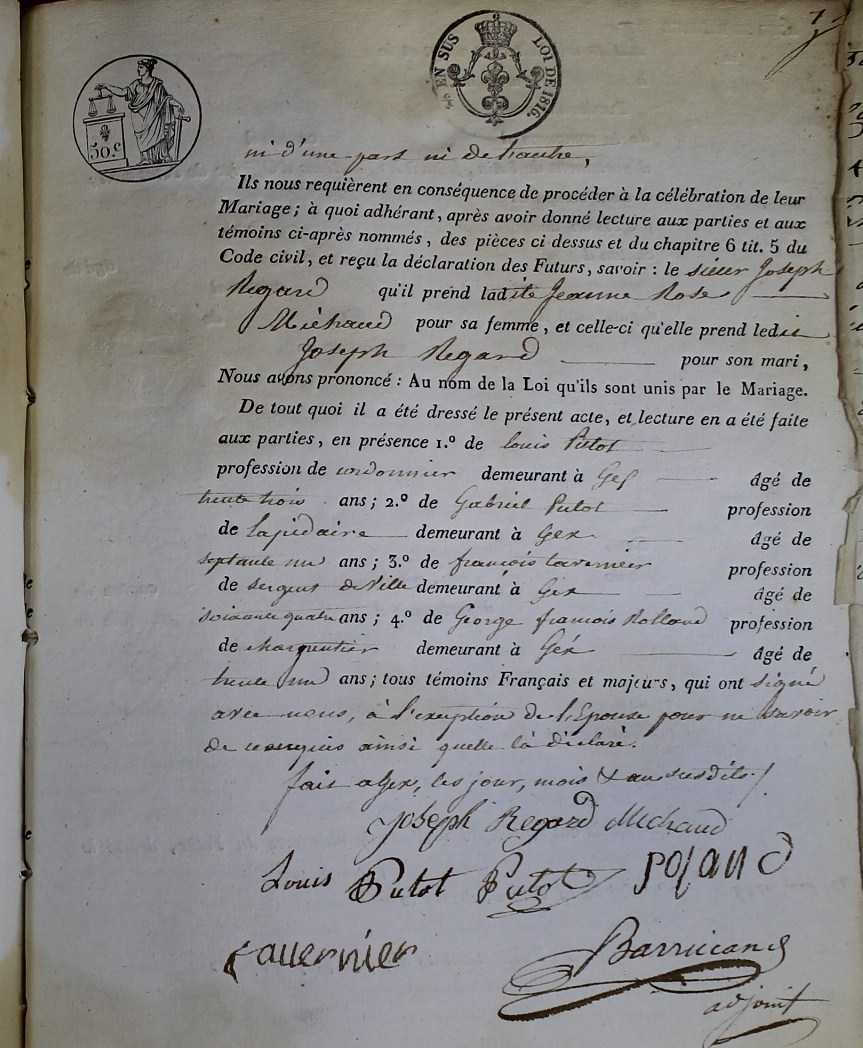 EN SUS LOI DE 1816.
50.c
ni d'une part ni de l'autre,
Ils nous requièrent en conséquence de procéder à la célébration de leur
Mariage; à quoi adhérant, après avoir donné lecture aux parties et aux
témoins ci-après nommés, des pièces ci dessus et du chapitre 6 tit. 5 du
Code civil, et reçu la déclaration des Futurs, savoir : le sieur Joseph
Regard qu'il prend ladite Jeanne Rose
Michaud pour sa femme, et celle-ci qu'elle prend ledit
Joseph Regard pour son mari,
Nous avons prononcé : Au nom de la Loi qu'ils sont unis par le Mariage.
De tout quoi il a été dressé le présent acte, et lecture en a été faite
aux parties, en présence 1.º de louis Putot
profession de cordonnier demeurant à Gex âgé de
trente trois ans; 2.º de Gabriel Putot profession
de Lapidaire demeurant à Gex âgé de
septante un ans; 3.º de françois tavernier profession
de sergent de Ville demeurant à Gex âgé de
soixante quatre ans; 4.º de George françois Rolland profession
de charpentier demeurant à Gex âgé de
trente un ans; tous témoins Français et majeurs, qui ont signé
avec nous, à l'exception de l'Epouse pour ne savoir
de ce enquis ainsi quelle là déclaré.
fait a Gex, les jour, mois & an susdits./.
Joseph Regard Michaud
Louis Putot Putot
tavernier
Barrucand
adjoint